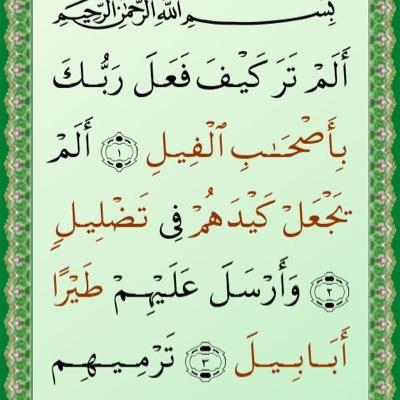 بِسْمِ اللَّهِ الرَّحْمَٰنِ الرَّحِيمِ
أَلَمْ تَرَ كَيْفَ فَعَلَ رَبُّكَ
بِأَصْحَٰبِ ٱلْفِيلِ ١ أَلَمْ
يَجْعَلْ كَيْدَهُمْ فِى تَضْلِيلٍ
٢ وَأَرْسَلَ عَلَيْهِمْ طَيْرًا
أَبَابِيلَ ٣ تَرْمِيهِم